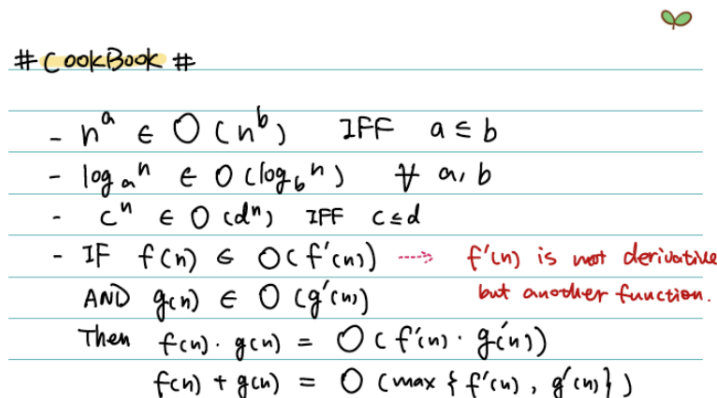 # CookBook #
- n^a ∈ O(n^b) IFF a ≤ b
- log_a n ∈ O(log_b n) ∀ a, b
- c^n ∈ O(d^n) IFF c ≤ d
- IF f(n) ∈ O(f'(n)) ---> f'(n) is not derivative
AND g(n) ∈ O(g'(n)) but another function.
Then f(n)·g(n) = O(f'(n)·g'(n))
f(n) + g(n) = O(max{f'(n), g'(n)})